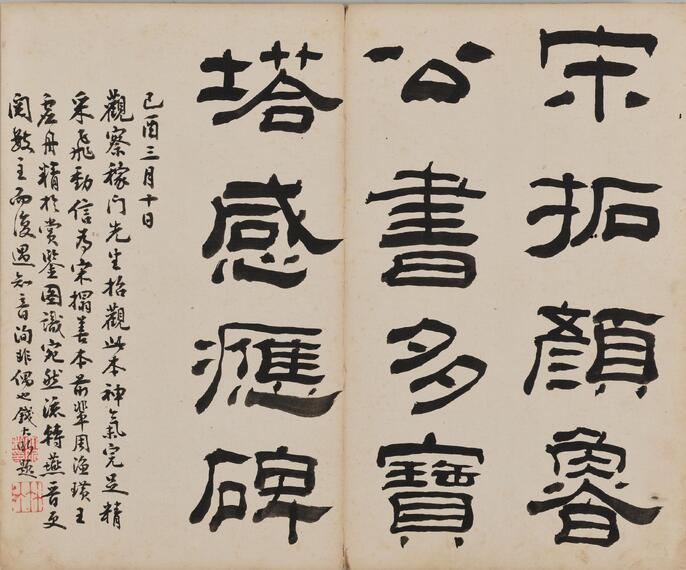 宋拓顏魯
公書多寶
塔感應碑
己酉三月十日
觀察稼门先生招觀此本神氣完足精
采飛動信為宋搨善本前輩周漁璜王
虛舟精於賞鑒圖識宛然流轉燕晉更
閱數主而復遇知音洵非偶也錢大昕題